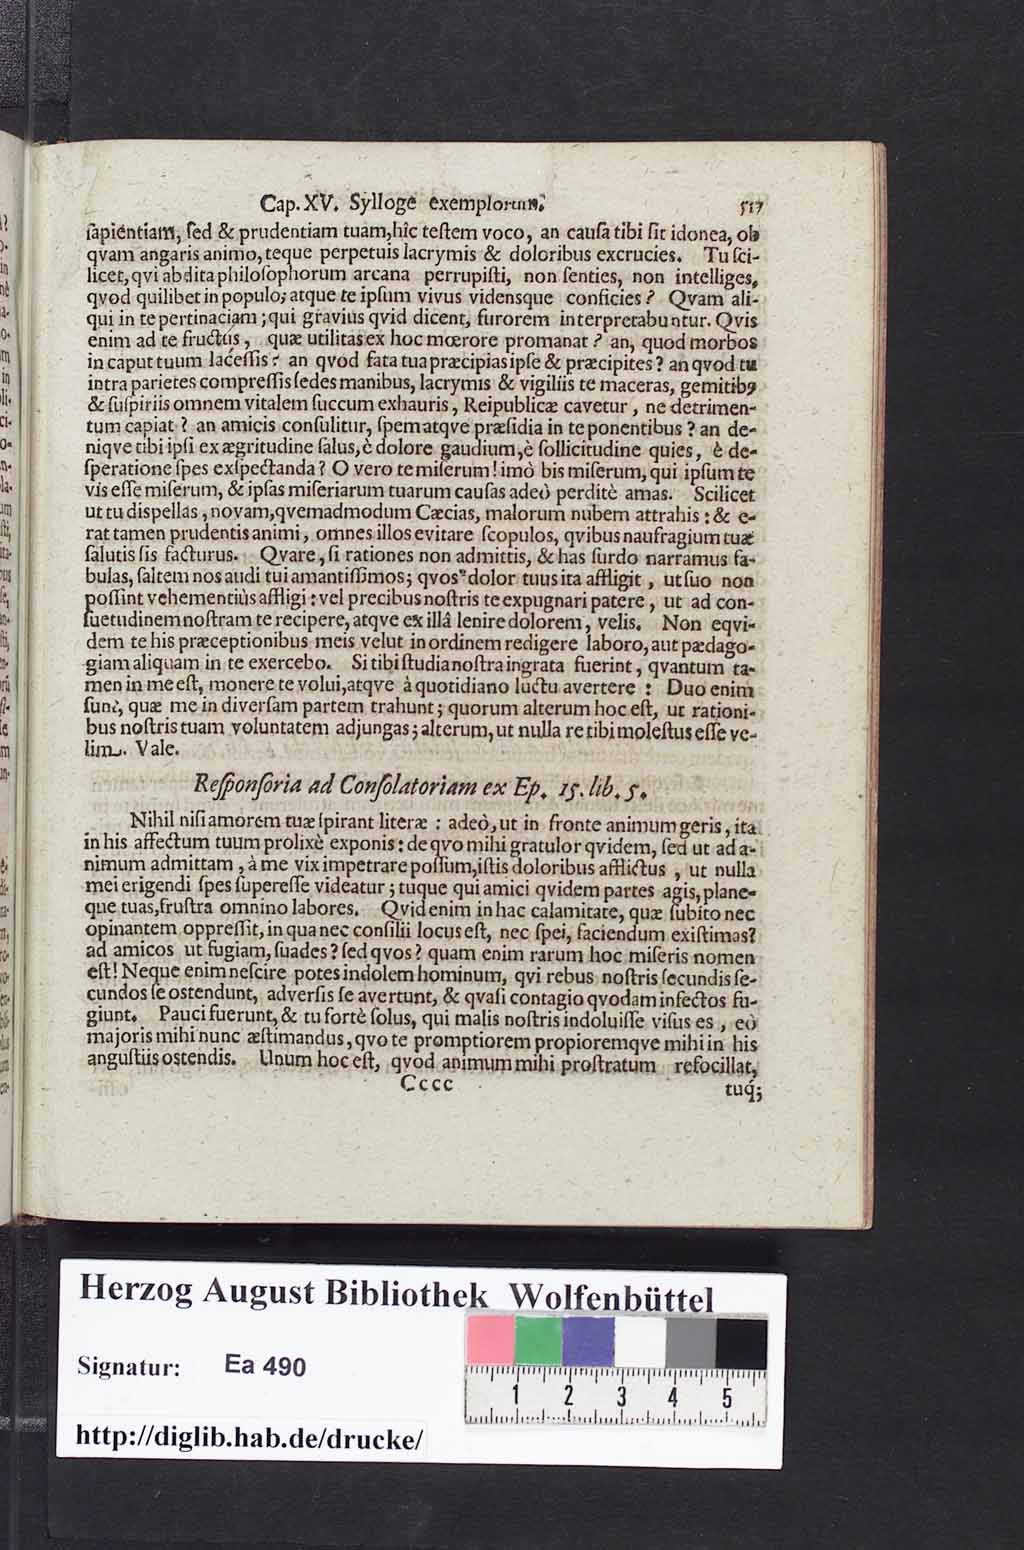 Cap. XV. Sylloge exemplorum. 517
ſapientiam, ſed & prudentiam tuam, hîc teſtem voco, an cauſa tibi ſit idonea, ob
qvam angaris animo, teque perpetuis lacrymis & doloribus excrucies. Tu ſci-
licet, qvi abdita philoſophorum arcana perrupiſti, non ſenties, non intelliges,
qvod quilibet in populo; atque te ipſum vivus vidensque conficies? Qvam ali-
qui in te pertinaciam; qui gravius qvid dicent, furorem interpretabuntur. Qvis
enim ad te fructus, quæ utilitas ex hoc mœrore promanat? an, quod morbos
in caput tuum laceſſis? an qvod fata tua præcipias ipſe & præcipites? an qvod tu
intra parietes compreſſis ſedes manibus, lacrymis & vigiliis te maceras, gemitibꝰ
& ſuſpiriis omnem vitalem ſuccum exhauris, Reipublicæ cavetur, ne detrimen-
tum capiat? an amicis conſulitur, ſpem atqve præſidia in te ponentibus? an de-
niqve tibi ipſi ex ægritudine ſalus, è dolore gaudium, è ſollicitudine quies, è de-
ſperatione ſpes exſpectanda? O vero te miſerum! imò bis miſerum, qui ipſum te
vis eſſe miſerum, & ipſas miſeriarum tuarum cauſas adeò perditè amas. Scilicet
ut tu dispellas, novam, qvemadmodum Cæcias, malorum nubem attrahis: & e-
rat tamen prudentis animi, omnes illos evitare ſcopulos, qvibus naufragium tuæ
ſalutis ſis facturus. Qvare, ſi rationes non admittis, & has ſurdo narramus fa-
bulas, ſaltem nos audi tui amantiſſimos; qvos dolor tuus ita affligit, ut ſuo non
poſſint vehementiùs affligi: vel precibus noſtris te expugnari patere, ut ad con-
ſuetudinem noſtram te recipere, atqve ex illâ lenire dolorem, velis. Non eqvi-
dem te his præceptionibus meis velut in ordinem redigere laboro, aut pædago-
giam aliquam in te exercebo. Si tibi ſtudia noſtra ingrata fuerint, qvantum ta-
men in me eſt, monere te volui, atqve à quotidiano luctu avertere: Duo enim
ſunt, quæ me in diverſam partem trahunt; quorum alterum hoc eſt, ut rationi-
bus noſtris tuam voluntatem adjungas; alterum, ut nulla re tibi moleſtus eſſe ve-
lim. Vale.
Reſponſoria ad Conſolatoriam ex Ep. 15. lib. 5.
Nihil niſi amorem tuæ ſpirant literæ: adeò, ut in fronte animum geris, ita
in his affectum tuum prolixè exponis: de qvo mihi gratulor qvidem, ſed ut ad a-
nimum admittam, à me vix impetrare poſſum, iſtis doloribus afflictus, ut nulla
mei erigendi ſpes ſupereſſe videatur; tuque qui amici qvidem partes agis, plane-
que tuas, fruſtra omnino labores. Qvid enim in hac calamitate, quæ ſubito nec
opinantem oppreſſit, in qua nec conſilii locus eſt, nec ſpei, faciendum exiſtimas?
ad amicos ut fugiam, ſuades? ſed qvos? quam enim rarum hoc miſeris nomen
eſt! Neque enim neſcire potes indolem hominum, qvi rebus noſtris ſecundis ſe-
cundos ſe oſtendunt, adverſis ſe avertunt, & quaſi contagio qvodam infectos fu-
giunt. Pauci fuerunt, & tu fortè ſolus, qui malis noſtris indoluiſſe viſus es, eò
majoris mihi nunc æſtimandus, qvo te promptiorem propioremqve mihi in his
anguſtiis oſtendis. Unum hoc eſt, qvod animum mihi proſtratum refocillat,
Cccc tuq́;
Herzog August Bibliothek Wolfenbüttel
Signatur: Ea 490
1 2 3 4 5
http://diglib.hab.de/drucke/